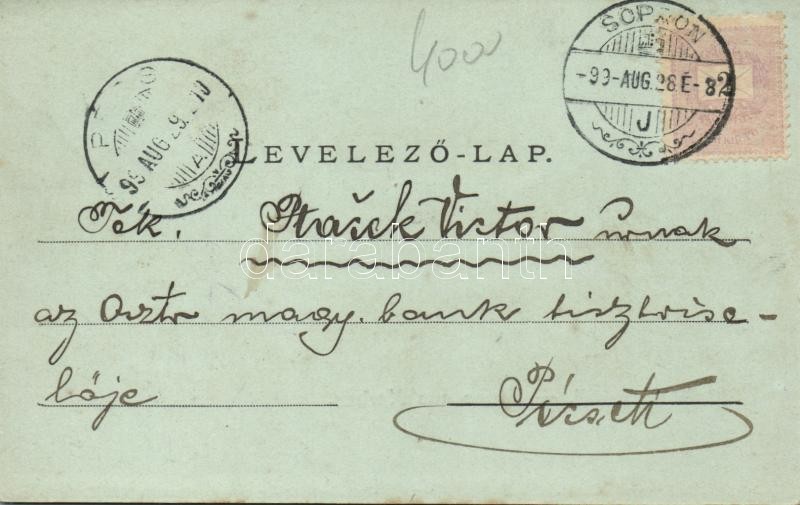 4000
SOPRON
-99-AUG.28.E-8
J
99 AUG. 29.
LEVELEZŐ-LAP.
Tek. Ptašek Victor úrnak
az Osztr magy. bank tisztvise-
lője Pécsett
darabanth